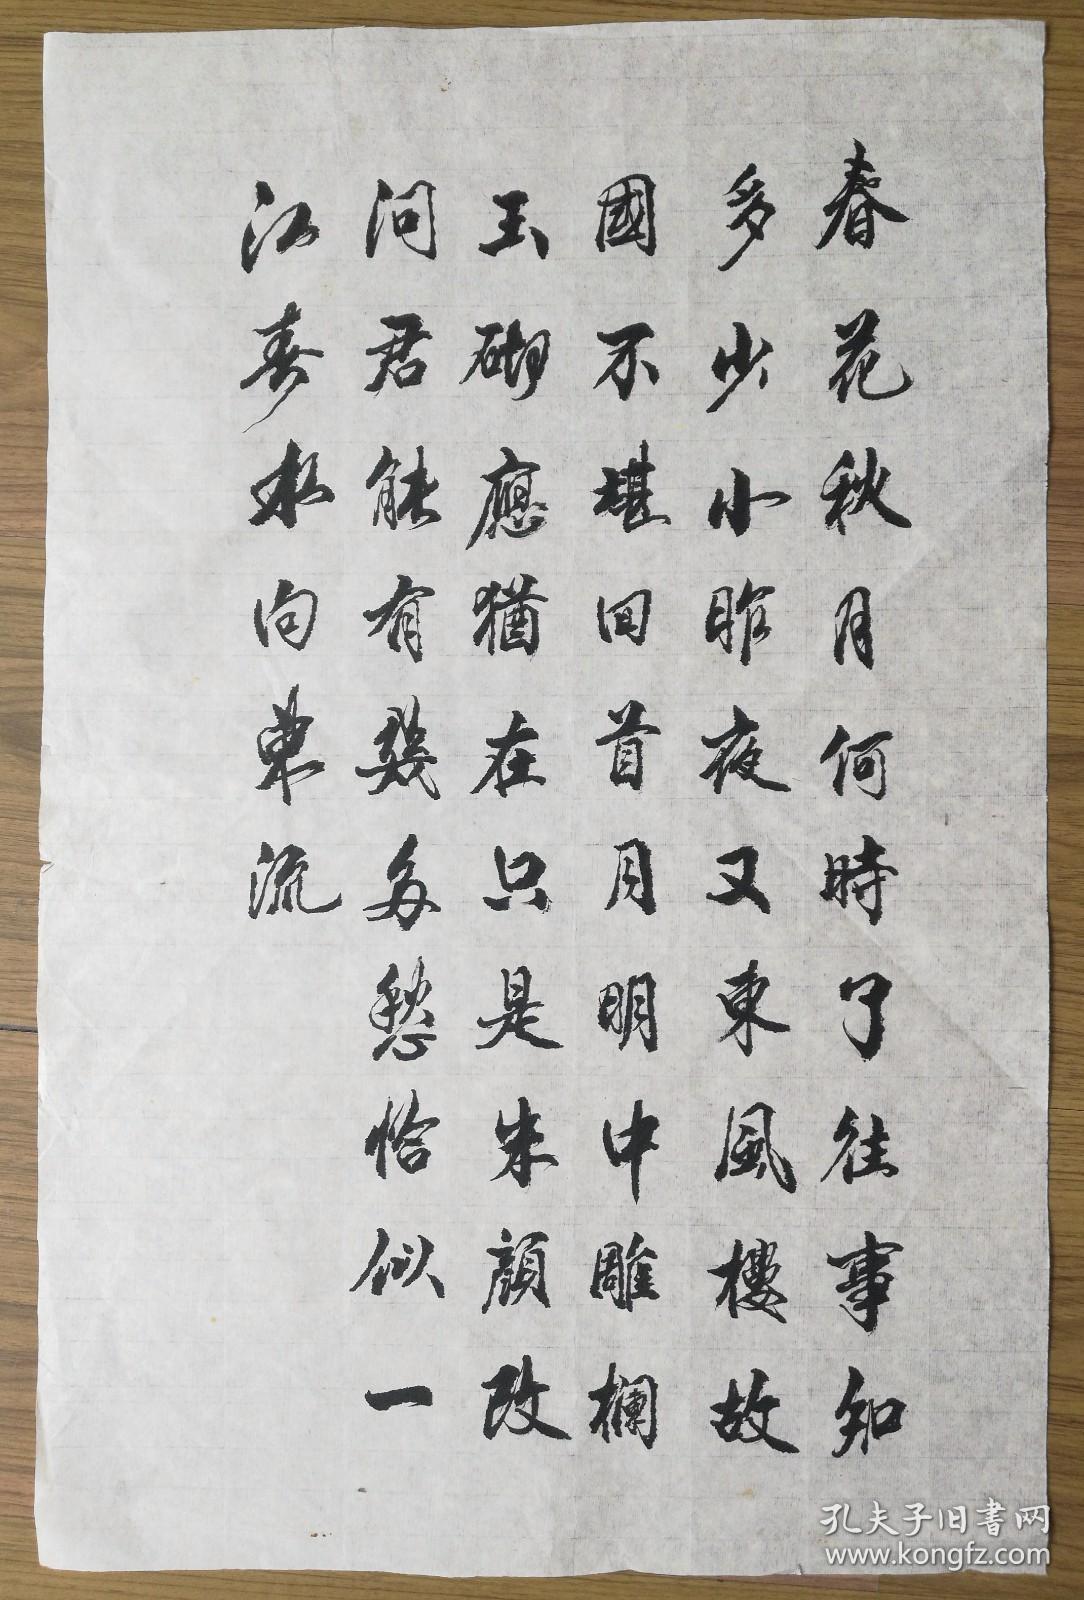 春花秋月何時了往事知
多少小昨夜又東風樓故
國不堪回首月明中雕欄
玉砌應猶在只是朱顏改
问君能有幾多愁恰似一
江春水向東流
孔夫子旧書网
www.kongfz.com